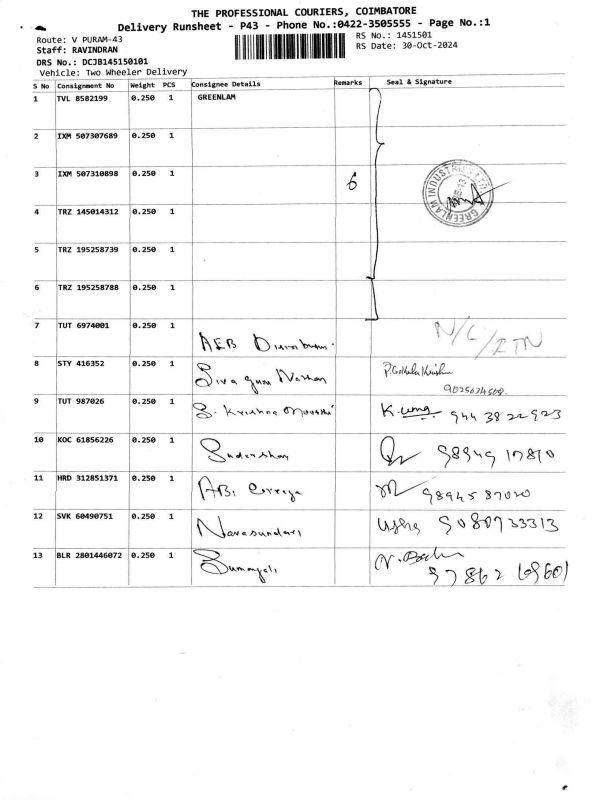 THE PROFESSIONAL COURIERS, COIMBATORE
Delivery Runsheet - P43 - Phone No.:0422-3505555 - Page No.:1
Route: V PURAM-43
RS No.: 1451501
Staff: RAVINDRAN
RS Date: 30-Oct-2024
DRS No.: DCJB145150101
Vehicle: Two Wheeler Delivery
S No Consignment No Weight PCS Consignee Details Remarks Seal & Signature
1 TVL 8582199 0.250 1 GREENLAM
2 IXM 507307689 0.250 1
3 IXM 507310898 0.250 1 6
GREENLAM INDUSTRIES LTD
4 TRZ 145014312 0.250 1
5 TRZ 195258739 0.250 1
6 TRZ 195258788 0.250 1
7 TUT 6974001 0.250 1 AEB N/C/RTN
8 STY 416352 0.250 1 Siva guru Nathan P. Gokula Krishn
9025634508
9 TUT 987026 0.250 1 S. Krishna Moorthi K. uma 944 38 22923
10 KOC 61856226 0.250 1 Sudarshan 98949 17810
11 HRD 312851371 0.250 1 ABi
12 SVK 60490751 0.250 1 Navasundari Usha 9080733313
13 BLR 2801446072 0.250 1 N.
97862 69601